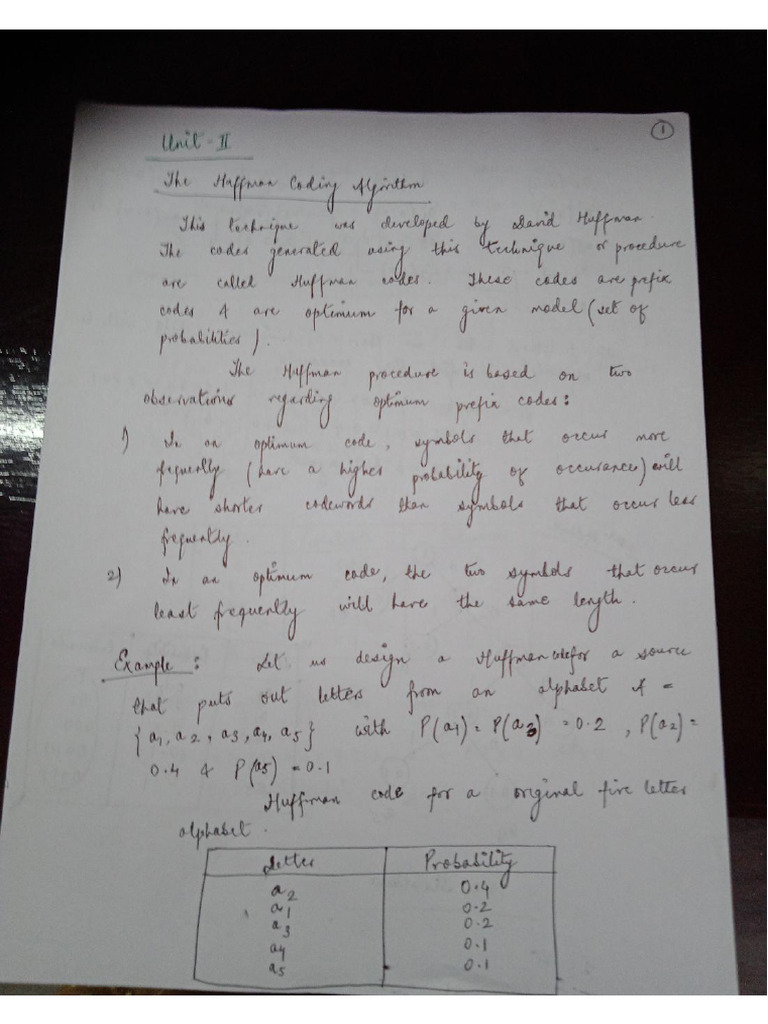 1
Unit - II
The Huffman Coding Algorithm
This technique was developed by David Huffman.
The codes generated using this technique or procedure
are called Huffman codes. These codes are prefix
codes & are optimum for a given model (set of
probabilities).
The Huffman procedure is based on two
observations regarding optimum prefix codes:
1) In an optimum code, symbols that occur more
frequently (have a higher probability of occurance) will
have shorter codewords than symbols that occur less
frequently.
2) In an optimum code, the two symbols that occur
least frequently will have the same length.
Example: Let us design a Huffman code for a source
that puts out letters from an alphabet A =
{a1, a2, a3, a4, a5} with P(a1) = P(a3) = 0.2, P(a2) =
0.4 & P(a5) = 0.1
Huffman code for a original five letter
alphabet.
Letter Probability
a2 0.4
a1 0.2
a3 0.2
a4 0.1
a5 0.1